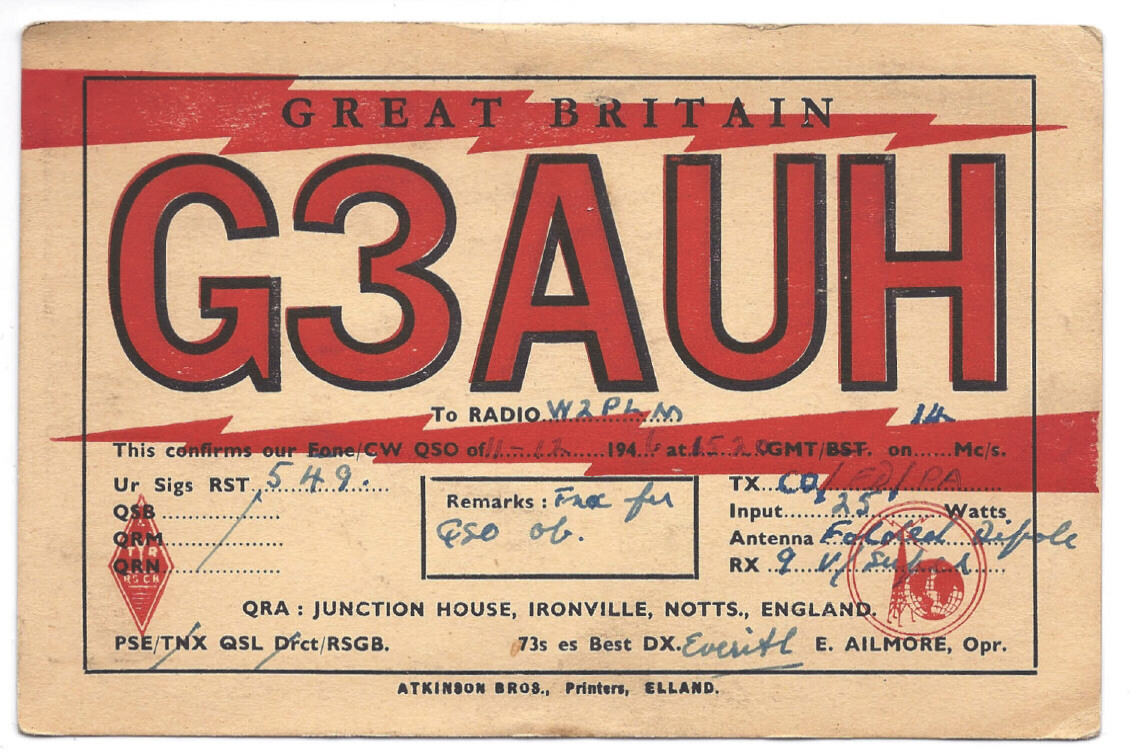 GREAT BRITAIN
G3AUH
To RADIO W2PLM
This confirms our Fone/CW QSO of 11-12 1946 at 1520 GMT/BST. on 14 Mc/s.
Ur Sigs RST 549. Remarks : Fnx fer TX CO/FD/PA
QSB QSO ob. Input 25 Watts
QRM Antenna Folded Dipole
QRN RX 9 V/Super
T R
RS CH
QRA : JUNCTION HOUSE, IRONVILLE, NOTTS., ENGLAND.
PSE/TNX QSL Drct/RSGB. 73s es Best DX. Everitt E. AILMORE, Opr.
ATKINSON BROS., Printers, ELLAND.